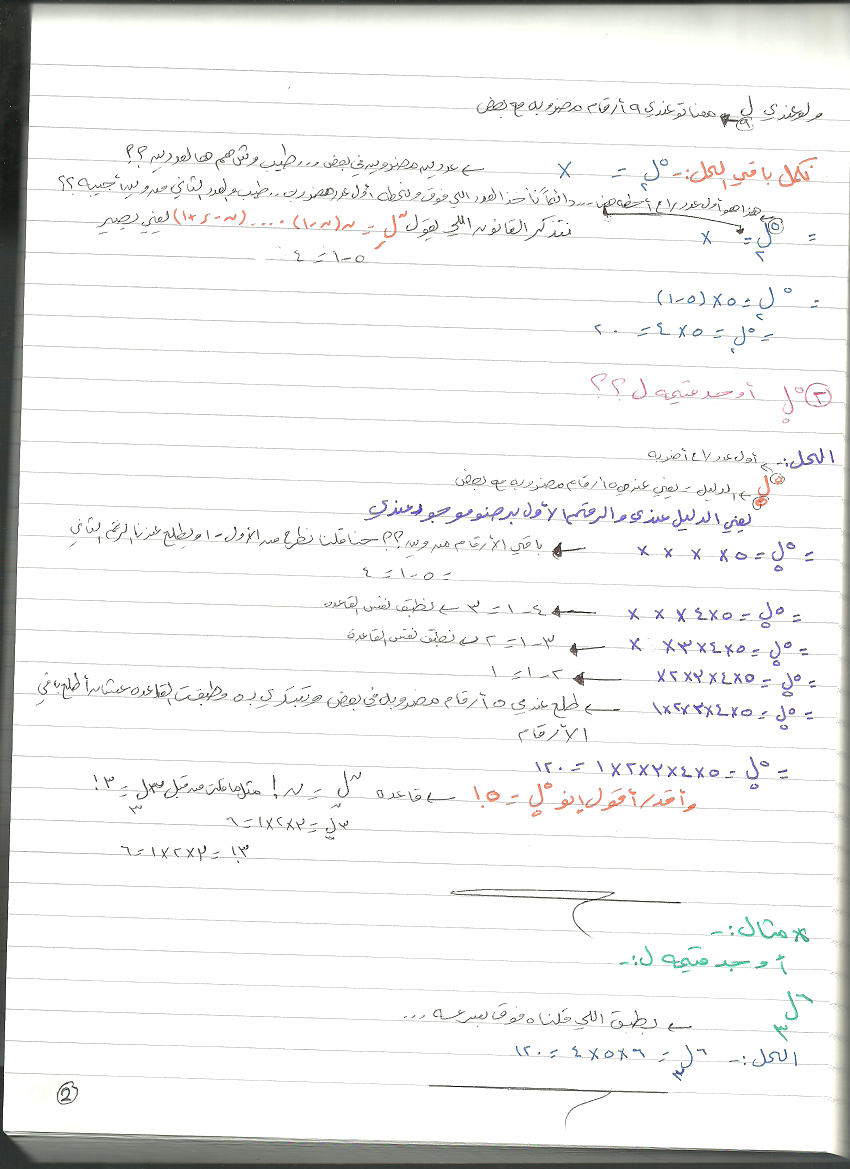 ولو عندي ل٩ معناتو عندي ٩ أرقام مضروبه مع بعض
نكمل باقي الحل:- ٥ل٢ = × ← عددين مضروبين في بعض ... طيب وش هم هالعددين ؟؟
هذا هو أول عدد لازم أحطه هنا ... دائماً نأخذ العدد اللي فوق ونحطه أول عدد مضروب .. طيب والعدد الثاني من وين أجيبه ؟؟
= ٥ل٢ = × نتذكر القانون اللي يقول نلر = ن(ن-١) .... (ن-ر+١) يعني يصير
٥-١ = ٤
= ٥ل٢ = ٥×(٥-١)
= ٥ل٢ = ٥×٤ = ٢٠
(٢) ٥ل٥ أوجد قيمه ل ؟؟
الحل:- ← أول عدد لازم أضربه
٥ل٥ ← الدليل - يعني عندي ٥ أرقام مضروبه مع بعض
يعني الدليل عندي والرقم الأول برضو موجود عندي
= ٥ل٥ = ٥× × × × ← باقي الأرقام من وين ؟؟ حنا قلنا نطرح من الأول -١ ويطلع عندنا الرقم الثاني
= ٥-١ = ٤
= ٥ل٥ = ٥×٤× × × ← ٤-١ = ٣ ← نطبق نفس القاعده
= ٥ل٥ = ٥×٤×٣× × ← ٣-١ = ٢ ← نطبق نفس القاعدة
= ٥ل٥ = ٥×٤×٣×٢× ← ٢-١ = ١
= ٥ل٥ = ٥×٤×٣×٢×١ ← طلع عندي ٥ أرقام مضروبه في بعض وطبقت القاعده عشان أطلع باقي
الأرقام
= ٥ل٥ = ٥×٤×٣×٢×١ = ١٢٠
وأقدر أقول إنو ٥ل٥ = ٥! ← قاعده نلن = ن! مثل ما قلت من قبل ٣ل٣ = ٣!
٣ل٣ = ٣×٢×١ = ٦
٣! = ٣×٢×١ = ٦
* مثال:-
أوجد قيمه ل:-
٦ل٣
← نطبق اللي قلناه فوق بسرعه ...
الحل:- ٦ل٣ = ٦×٥×٤ = ١٢٠
2